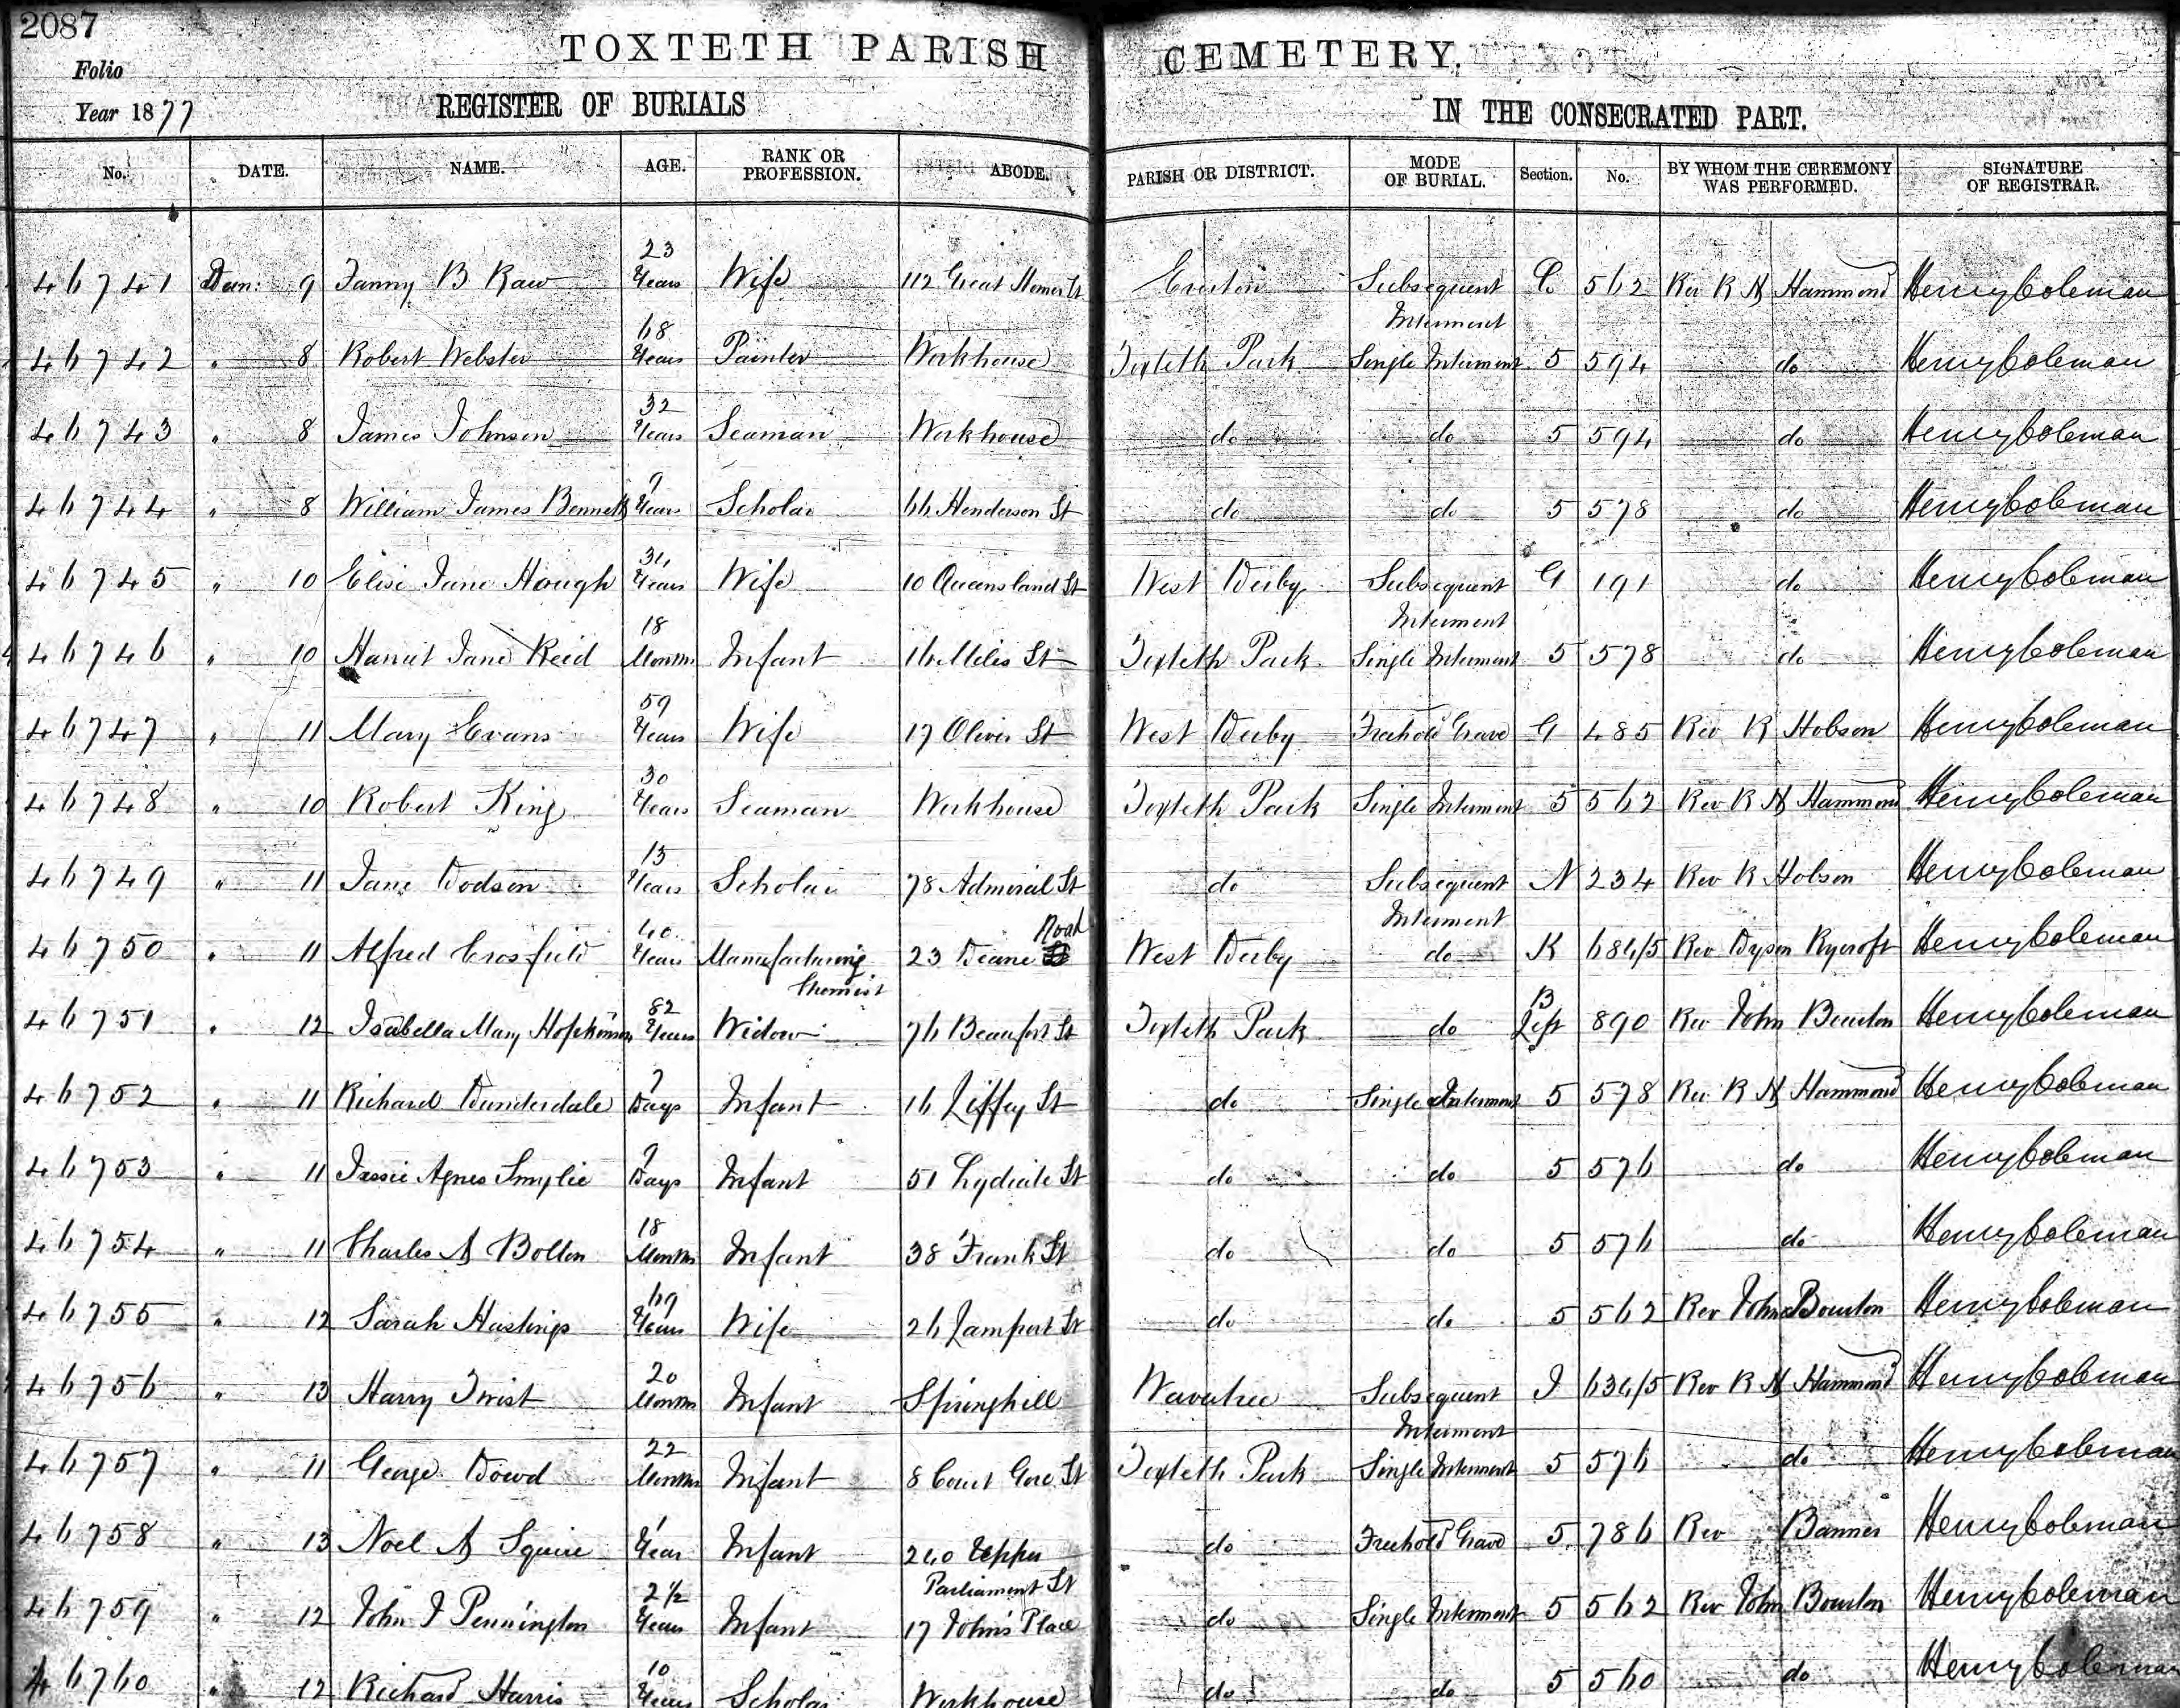 2087
TOXTETH PARISH CEMETERY.
Folio
Year 1877
REGISTER OF BURIALS IN THE CONSECRATED PART.
No. DATE. NAME. AGE. RANK OR PROFESSION. ABODE. PARISH OR DISTRICT. MODE OF BURIAL. Section. No. BY WHOM THE CEREMONY WAS PERFORMED. SIGNATURE OF REGISTRAR.
46741 9 Fanny B Raw 23 Years Wife 112 Great Homer St Everton Subsequent Interment C 562 Rev R N Hammond Henry Coleman
46742 " 8 Robert Webster 68 Years Painter Workhouse Toxteth Park Single Interment 5 594 do Henry Coleman
46743 " 8 James Johnson 32 Years Seaman Workhouse do do 5 594 do Henry Coleman
46744 " 8 William James Bennett 9 Years Scholar 66 Henderson St do do 5 578 do Henry Coleman
46745 " 10 Elise Jane Hough Years Wife 10 Queensland St West Derby Subsequent Interment G 191 do Henry Coleman
46746 " 10 Harriet Jane Reid 18 Months Infant 16 Miles St Toxteth Park Single Interment 5 578 do Henry Coleman
46747 " 11 Mary Evans 59 Years Wife 17 Oliver St West Derby Freehold Grave G 485 Rev R Hobson Henry Coleman
46748 " 10 Robert King 30 Years Seaman Workhouse Toxteth Park Single Interment 5 562 Rev R N Hammond Henry Coleman
46749 " 11 Jane Dodson 15 Years Scholar 78 Admiral St do Subsequent Interment N 234 Rev R Hobson Henry Coleman
46750 " 11 Alfred Crosfield 40 Years Manufacturing Chemist 23 Deane Road West Derby do K 684/5 Rev Dyson Rycroft Henry Coleman
46751 " 12 Isabella Mary Hopkinson 82 Years Widow 76 Beaufort St Toxteth Park do B Left 890 Rev John Bourton Henry Coleman
46752 " 11 Richard Dunderdale 7 Days Infant 16 Liffey St do Single Interment 5 578 Rev R N Hammond Henry Coleman
46753 " 11 Jessie Agnes Smylie 9 Days Infant 51 Lydiate St do do 5 576 do Henry Coleman
46754 " 11 Charles A Bolton 18 Months Infant 38 Frank St do do 5 576 do Henry Coleman
46755 " 12 Sarah Hastings 69 Years Wife 26 Lamport St do do 5 562 Rev John Bourton Henry Coleman
46756 " 13 Harry Twist 20 Months Infant Springhill Wavertree Subsequent Interment I 634/5 Rev R N Hammond Henry Coleman
46757 " 11 George Dowd 22 Months Infant 8 Court Gore St Toxteth Park Single Interment 5 576 do Henry Coleman
46758 " 13 Noel A Squire 1 Year Infant 240 Upper Parliament St do Freehold Grave 5 786 Rev Banner Henry Coleman
46759 " 12 John J Pennington 2 1/2 Years Infant 17 John's Place do Single Interment 5 562 Rev John Bourton Henry Coleman
46760 " 12 Richard Harris 10 Years Scholar Workhouse do do 5 560 do Henry Coleman